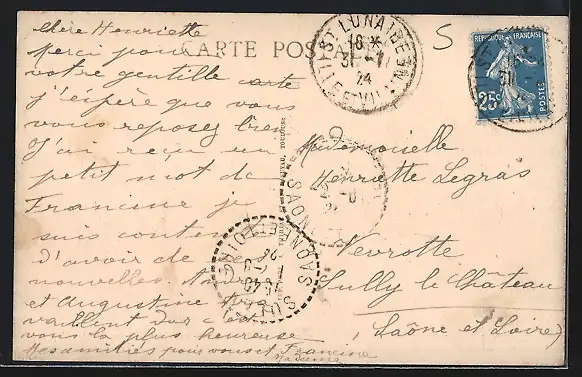 CARTE POSTALE
Chère Henriette
Merci pour
votre gentille carte
j'éspère que vous
vous reposez bien
J'ai reçu un
petit mot de
Francine je
suis contente
d'avoir de ses
nouvelles. André
et Augustine tra
vaillent dur c'est
vous la plus heureuse
Mes amitiés pour vous et Francine
Mademoiselle
Henriette Legras
Nevrotte
Sully le Château
(Saône et Loire)
ST LUNAIRE
18 *
31-7
24
ILLE-ET-VIL.
REPUBLIQUE FRANÇAISE
25c
POSTES
SAONE ET LOIRE
SULLY
S